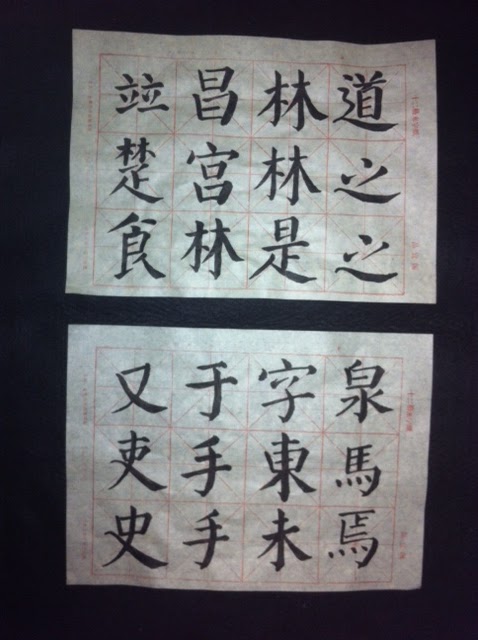 道之之
林林是
昌宮林
竝楚食
泉馬焉
字東未
于手手
又吏史